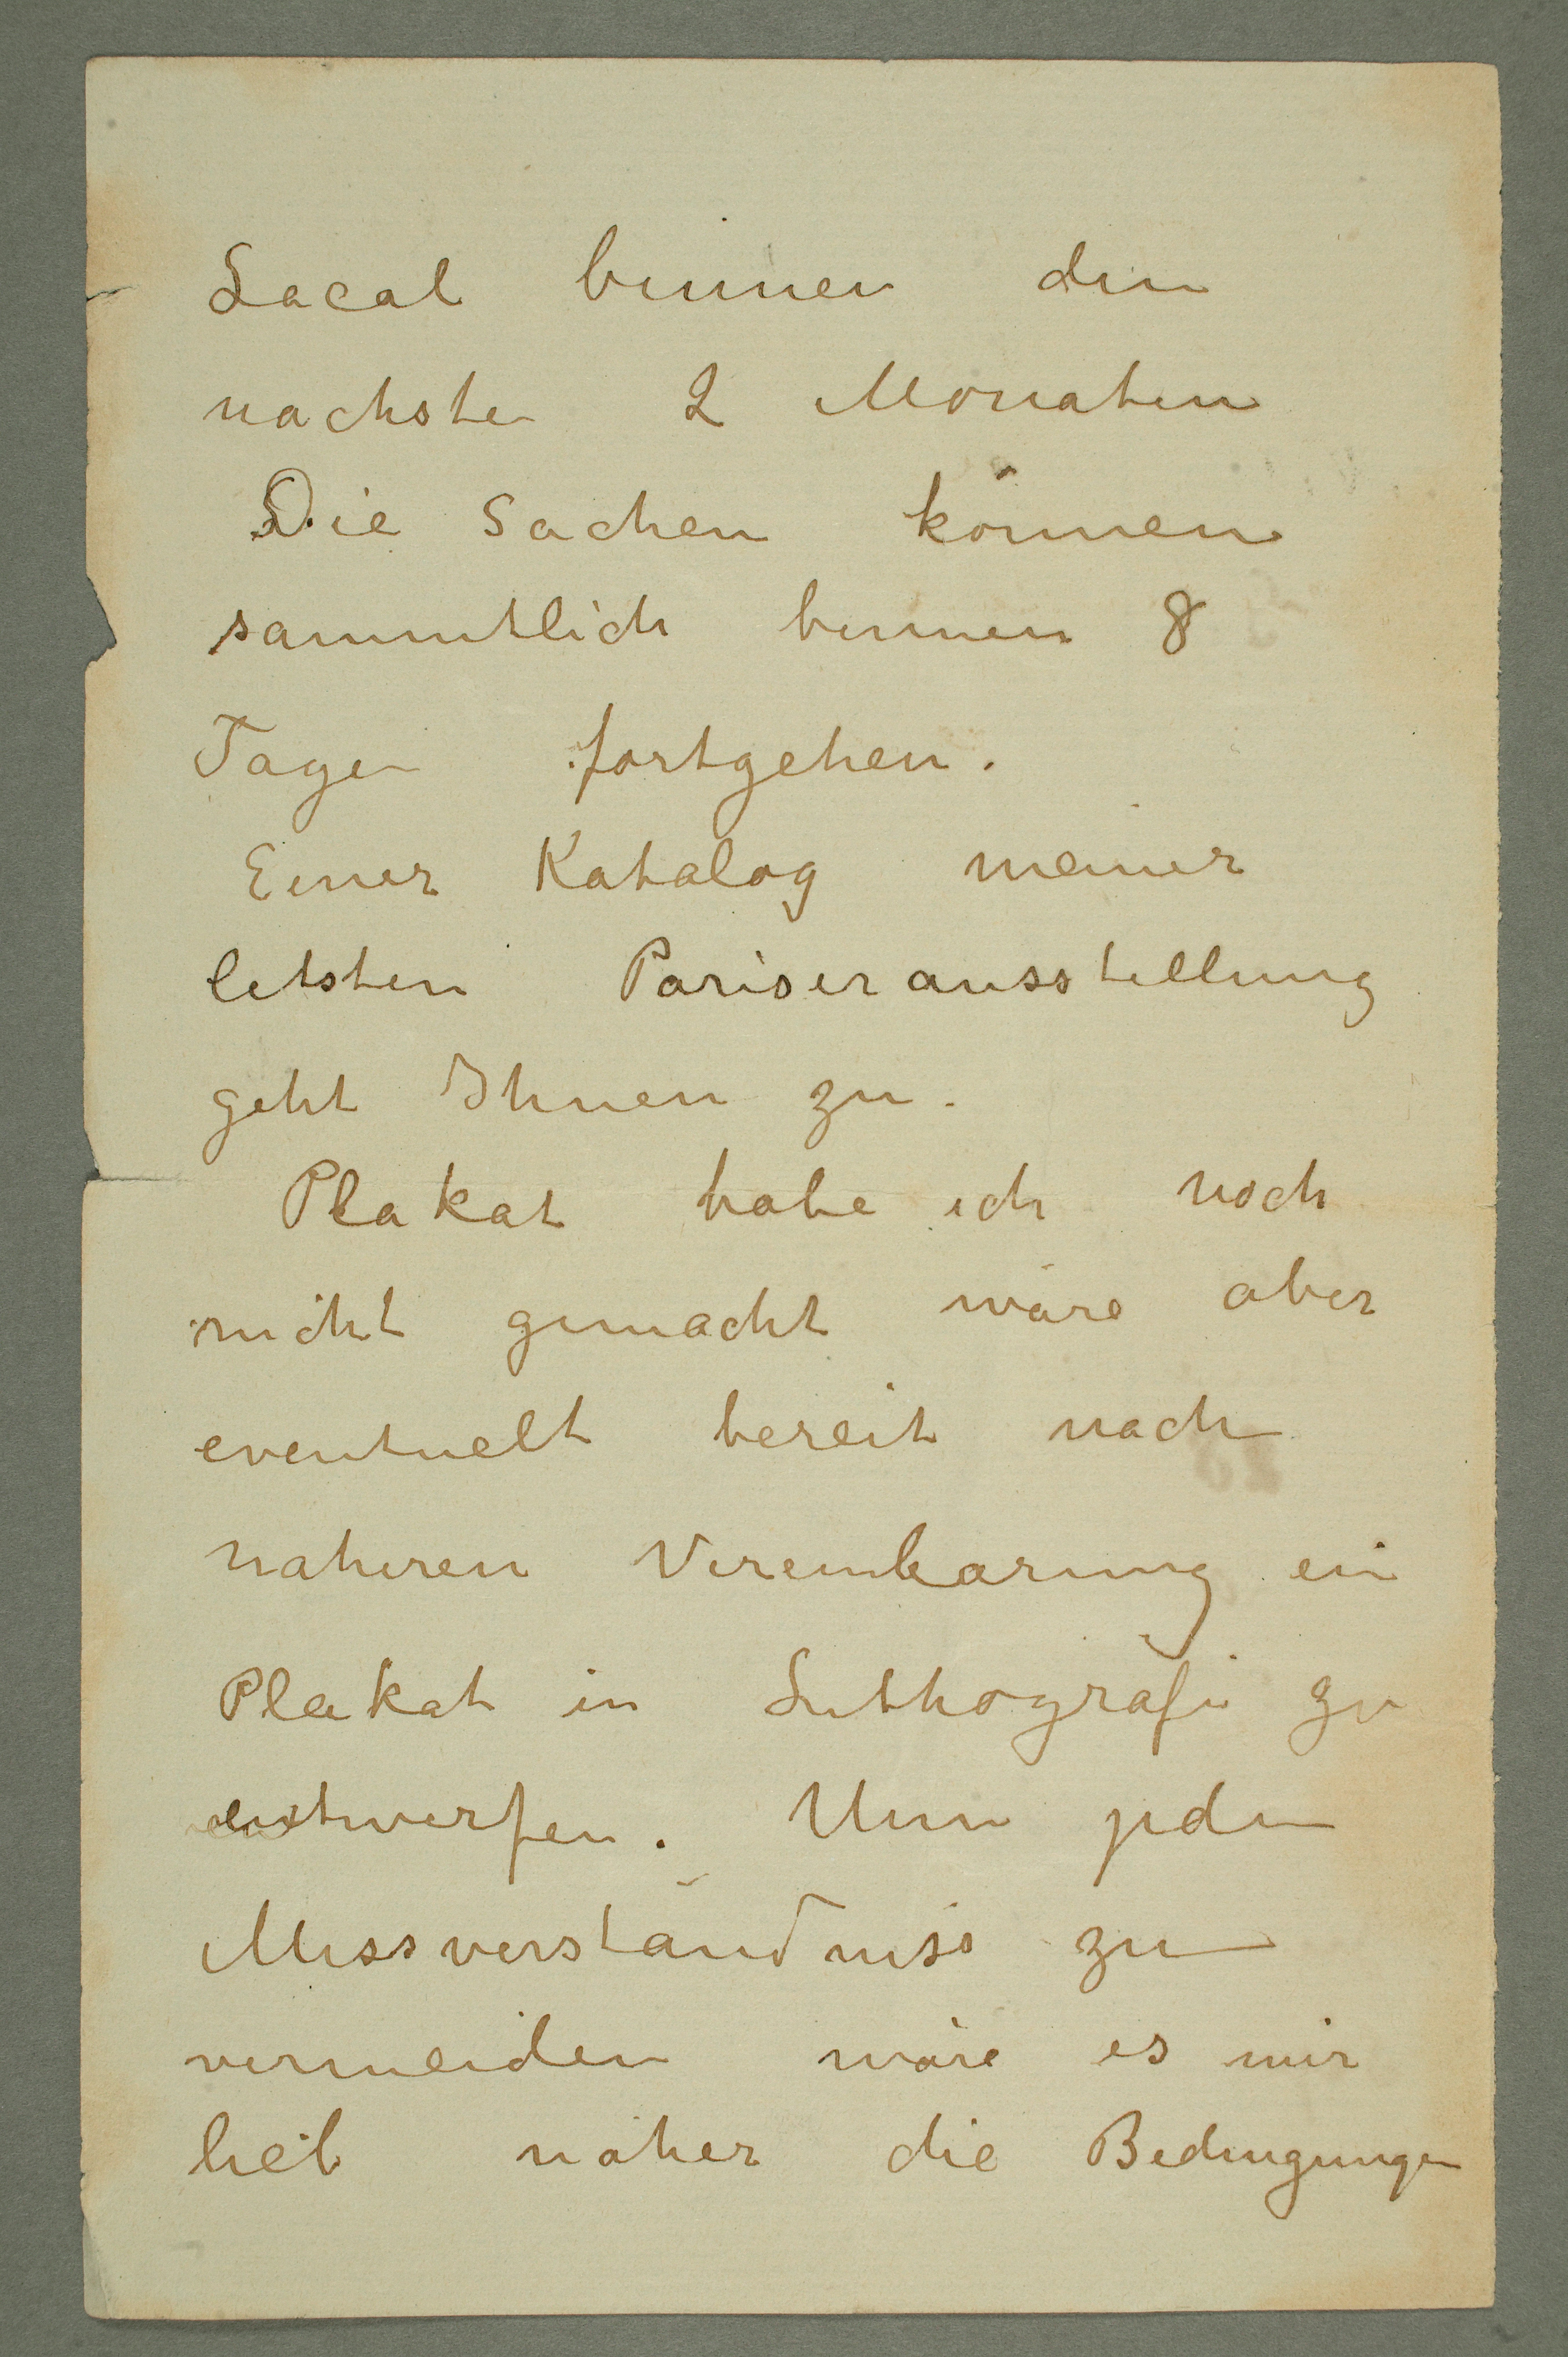 Local binnen den
nachsten 2 Monaten
Die Sachen können
sammtlich binnen 8
Tagen fortgehen.
Einer Katalog meiner
letsten Pariserausstellung
geht Ihnen zu.
Plakat habe ich noch
nicht gemacht wäre aber
eventuelt bereit nach
naheren Vereinbarung ein
Plakat in Lithografi zu
entwerfen. Um jeden
Missverständniss zu
vermeiden wäre es mir
lieb naher die Bedingungen